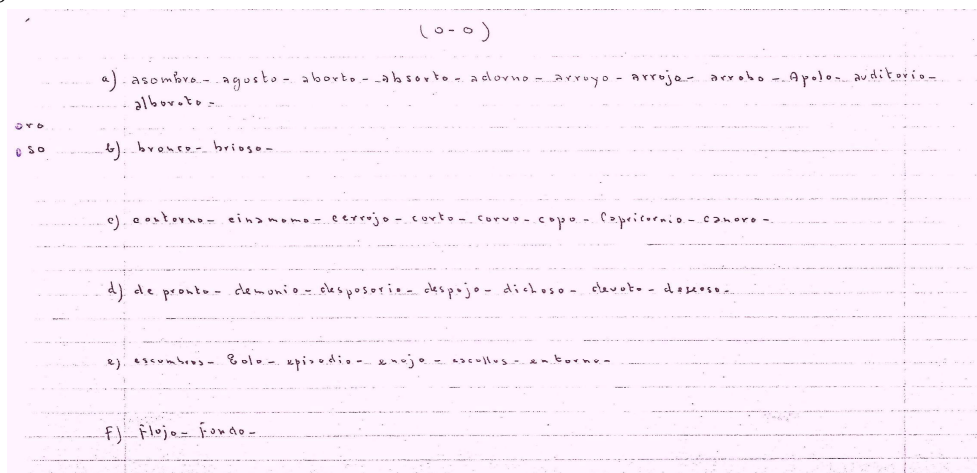 (o-o)
a) asombro - agosto - aborto - absorto - adorno - arroyo - arrojo - arrobo - Apolo - auditorio -
alboroto -
oro
oso b) bronco - brioso -
c) contorno - cinamomo - cerrojo - corto - corvo - copo - Capricornio - canoro -
d) de pronto - demonio - desposorio - despojo - dichoso - devoto - deseoso -
e) escombros - Eolo - episodio - enojo - escollos - entorno -
f) Flojo - Fondo -